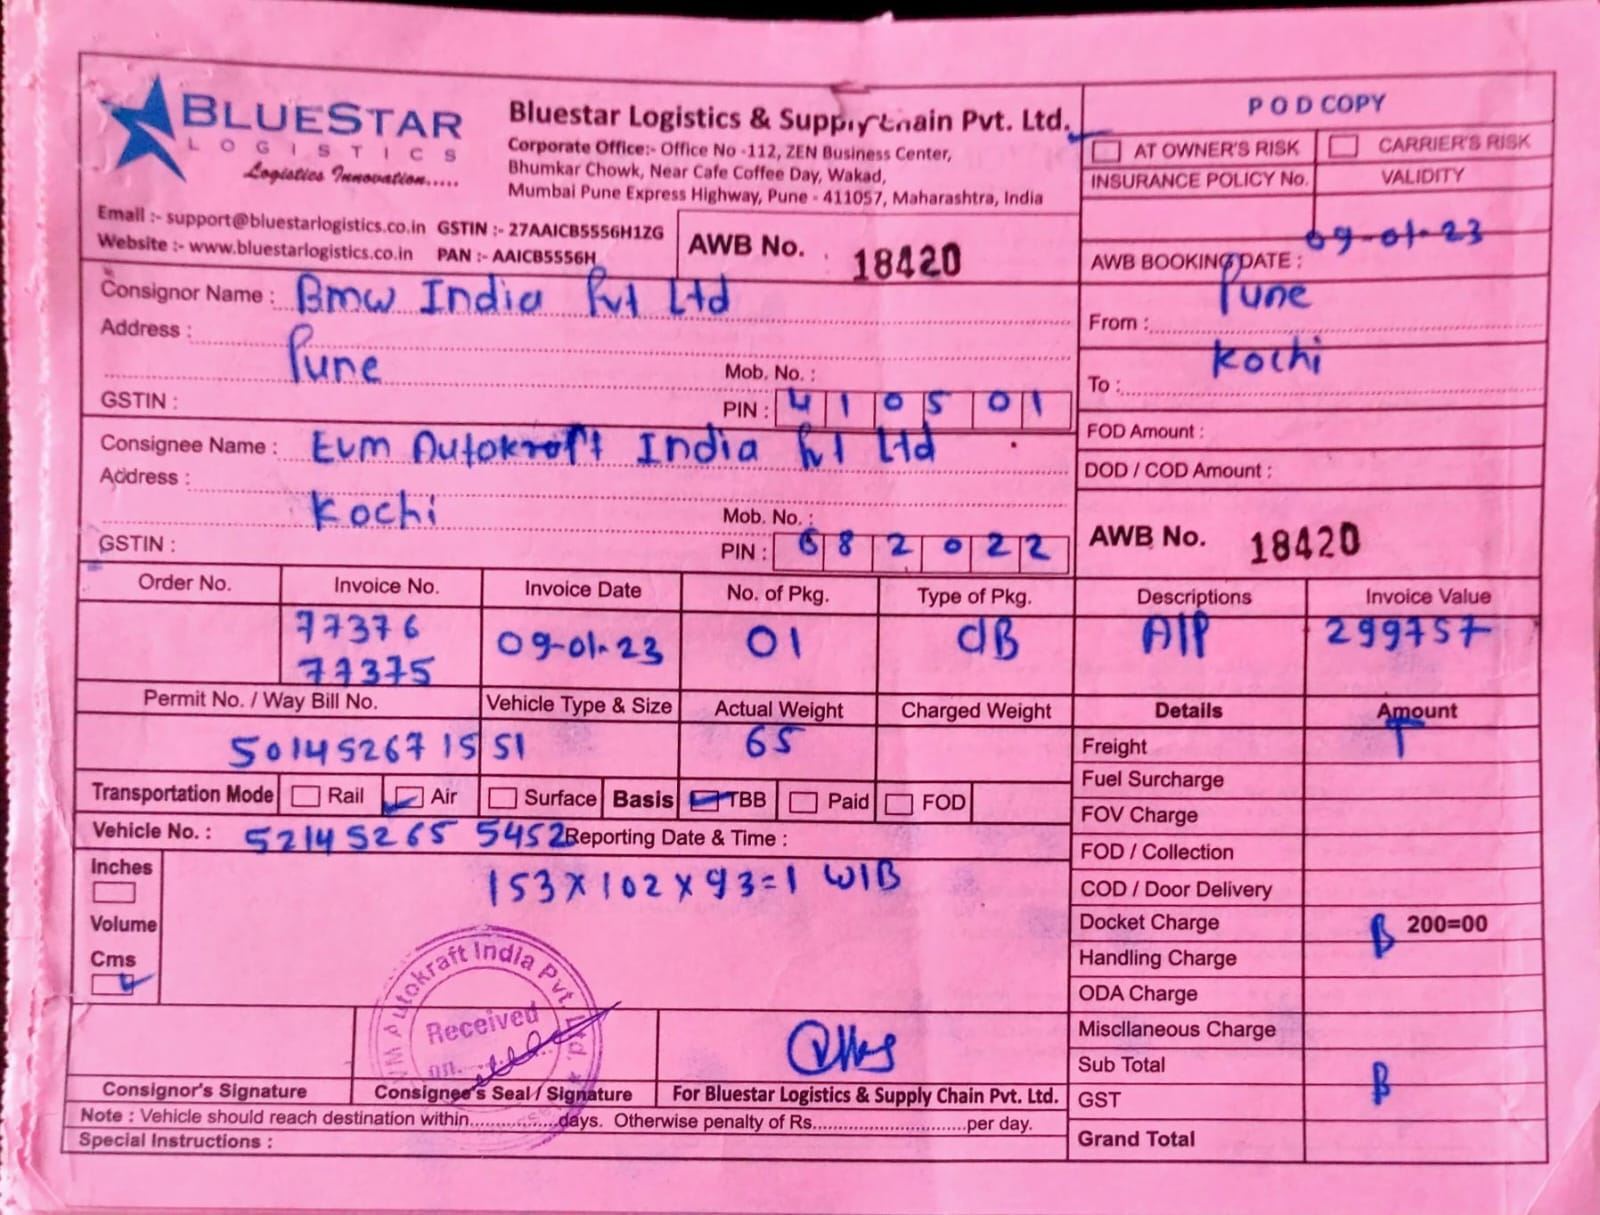 BLUESTAR
LOGISTICS
Logistics Innovation.....
Bluestar Logistics & Supply Chain Pvt. Ltd.
Corporate Office:- Office No -112, ZEN Business Center,
Bhumkar Chowk, Near Cafe Coffee Day, Wakad,
Mumbai Pune Express Highway, Pune - 411057, Maharashtra, India
Email :- support@bluestarlogistics.co.in GSTIN :- 27AAICB5556H1ZG
Website :- www.bluestarlogistics.co.in PAN :- AAICB5556H
AWB No. 18420
POD COPY
AT OWNER'S RISK CARRIER'S RISK
INSURANCE POLICY No. VALIDITY
AWB BOOKING DATE : 09-01-23
From : Pune
To : Kochi
FOD Amount :
DOD / COD Amount :
AWB No. 18420
Consignor Name : Bmw India Pvt Ltd
Address :
Pune Mob. No. :
GSTIN : PIN : 410501
Consignee Name : Evm Autokraft India Pvt Ltd
Address :
Kochi Mob. No. :
GSTIN : PIN : 682022
Order No. Invoice No. Invoice Date No. of Pkg. Type of Pkg. Descriptions Invoice Value
77376 09-01-23 01 CB A/P 299757
77375
Permit No. / Way Bill No. Vehicle Type & Size Actual Weight Charged Weight Details Amount
501452671551 65
Transportation Mode Rail Air Surface Basis TBB Paid FOD
Vehicle No. : 521452655452 Reporting Date & Time :
Inches
Volume
Cms
153x102x93=1 W/B
Freight
Fuel Surcharge
FOV Charge
FOD / Collection
COD / Door Delivery
Docket Charge 200=00
Handling Charge
ODA Charge
Miscllaneous Charge
Sub Total
GST
Grand Total
VM Autokraft India Pvt. Ltd. *
Received
on
Consignor's Signature Consignee's Seal / Signature For Bluestar Logistics & Supply Chain Pvt. Ltd.
Note : Vehicle should reach destination within................days. Otherwise penalty of Rs............................per day.
Special Instructions :